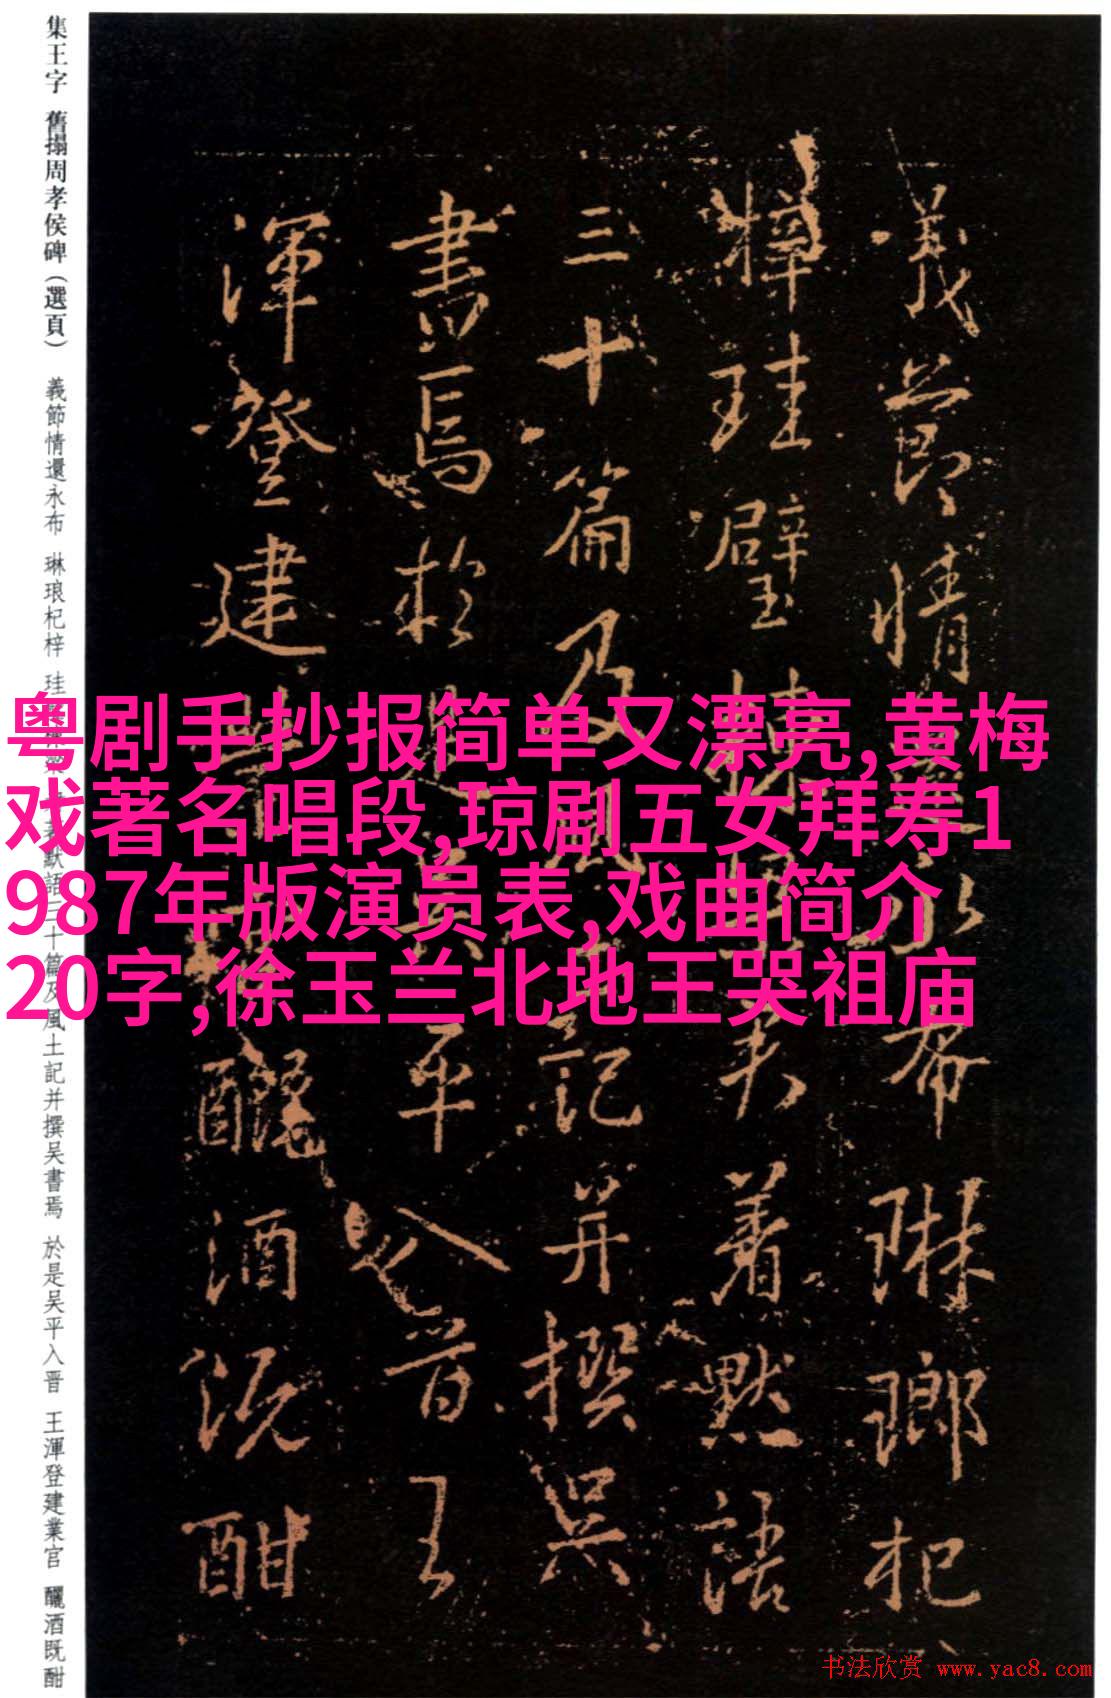 集王字 舊搨周孝侯碑（選頁） 義節情還永布 琳琅杞梓 珪 三十篇及風土記并撰吳書焉 於是吳平入晉 王渾登建業官 釃酒既酣
義節情永布琳瑯杞
梓珪璧棟夫著默語
三十篇及風記并撰吳
書焉於吳平入晉王
渾登建釃酒既酣
粤剧手抄报简单又漂亮,黄梅
戏著名唱段,琼剧五女拜寿1
987年版演员表,戏曲简介
20字,徐玉兰北地王哭祖庙
书法欣赏 www.yac8.com